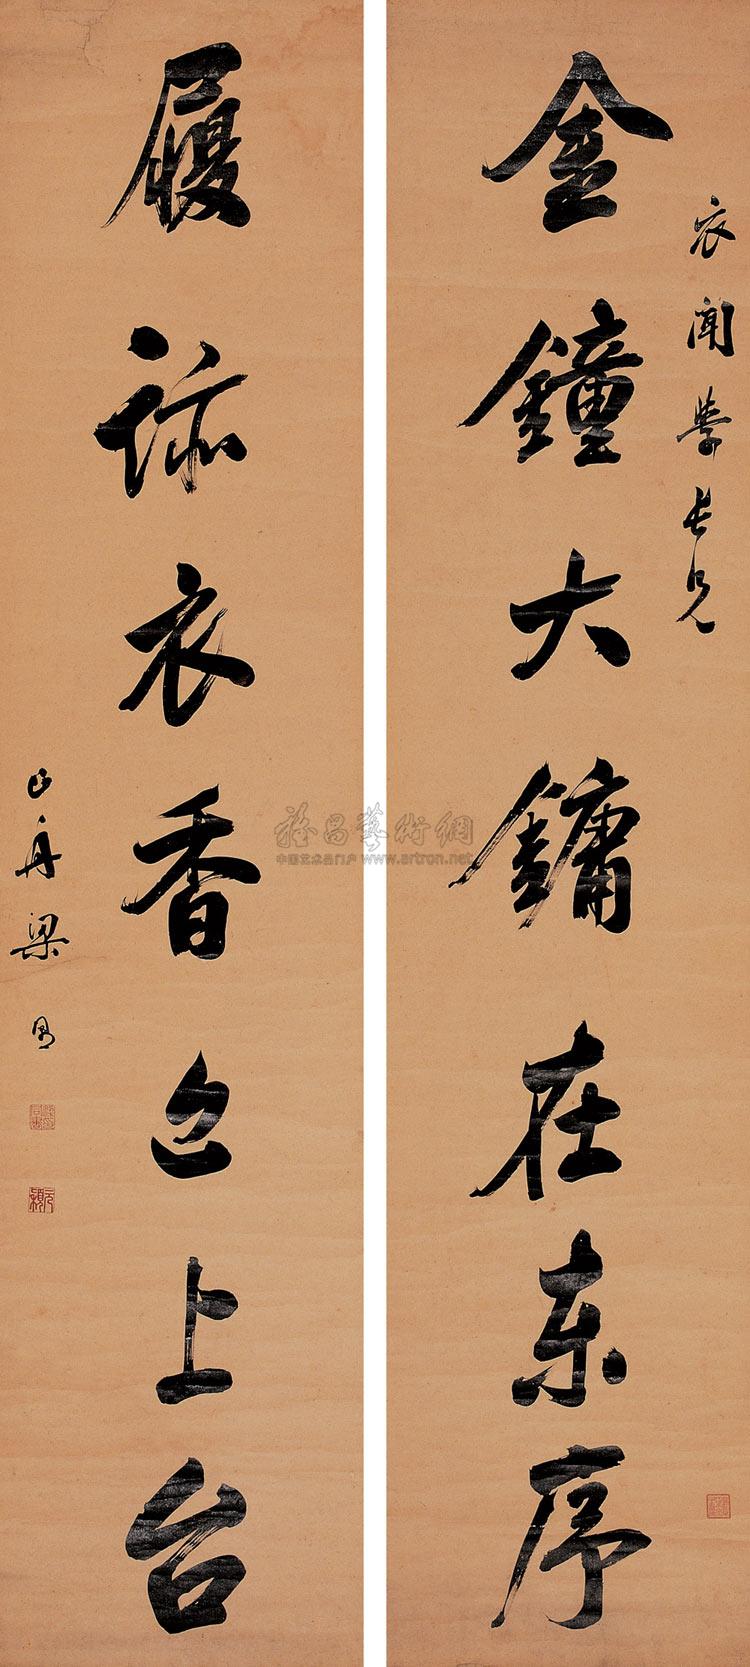 衣聞學長兄
金鐘大鏞在東序
履跡衣香上台
山舟梁同書
元穎
雅昌藝術網
中国艺术品门户 www.artron.net